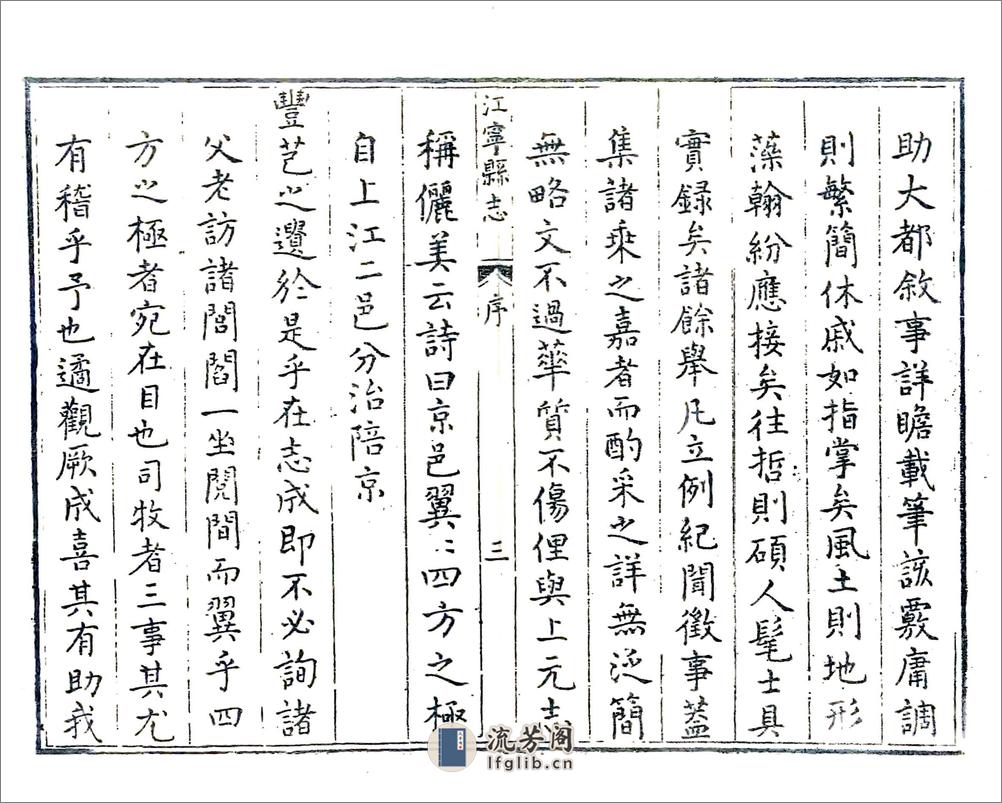 助大都敘事詳瞻載筆該覈庸調
則繁簡休戚如指掌矣風土則地形
藻翰紛應接矣往哲則碩人髦士具
實録矣諸餘舉凡立例紀聞徵事蓋
集諸乘之嘉者而酌采之詳無泛簡
無略文不過華質不傷俚與上元志
稱儷美云詩曰京邑翼〻四方之極
自上江二邑分治陪京
豐芑之遺於是乎在志成即不必詢諸
父老訪諸閭閻一坐閱間而翼乎四
方之極者宛在目也司牧者三事其尤
有稽乎予也遹觀厥成喜其有助我
江寧縣志
序
三
流芳阁
lfglib.cn